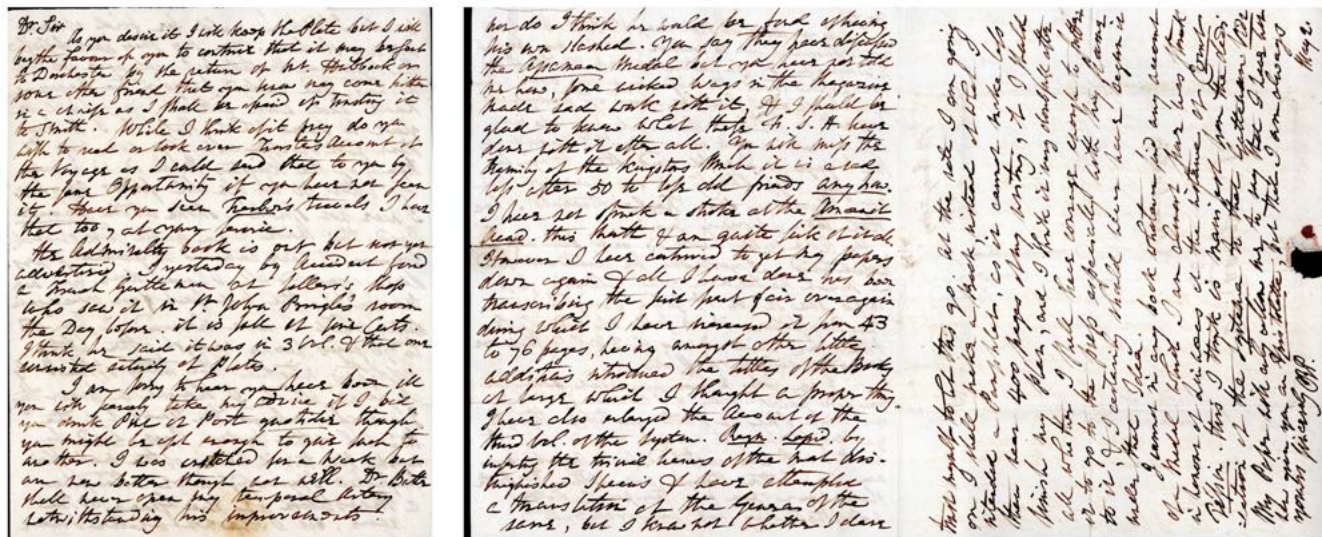 Dr. Sir
As you desire it I will keep the Plate but I will
beg the favour of you to contrive that it may be sent
to Dorchester by the return of Mr.
some other friend that you may come hither
in a chaise as I shall be afraid of trusting it
to Smith. While I think of it pray do you
wish to read or look over Forster's Account of
the Voyage as I could send that to you by
the same Opportunity if you have not seen
it. Have you seen travels I have
that too, at your service.
The Admiralty book is out but not yet
advertised, I yesterday by Accident found
a French Gentleman at shop
who saw it in Sr. John Pringle's room
the Day before. it is full of fine Cuts.
I think he said it was in 3 vol. & that one
consisted entirely of Plates.
I am sorry to hear you have been ill
you will surely take no advice if I bid
you drink Port though
you might be apt enough to give such to
another. I was for a week but
am now better though not well. Dr. Butter
shall never open my temporal Artery
notwithstanding his improvements.
nor do I think he would be fond of having
his own slashed. You say they have
the Medal but you have not told
me how, some wicked wags in the Magazine
made sad work with it, & I should be
glad to know what these F. S. A. have
done with it after all. You will miss the
family of the Kingstons much it is a sad
loss after 50 to lose old friends any how.
I have not struck a stroke at the
head. this month & am quite sick of it all.
However I have contrived to get my papers
down again & all I have done has been
transcribing the first part fair over again
during which I have increased it from 43
to 76 pages, having amongst other little
additions introduced the titles of the Books
at large which I thought a proper thing
I have also enlarged the Account of the
third vol. of the System. Regn. Lapid. by
inserting the trivial names of the most dis-
tinguished Species & have attempted
a translation of the Genera of the
same, but I know not whether I dare
trust myself to let this go. at the rate I am going
on I shall make a Book, instead of what I
intended a Pamphlet, as it cannot make less
than near 400 pages of my writing, if I should
finish my Plan, and I think it very doubtful after
all whether I shall have courage enough to
to it, & I certainly should never have begun it
under that Idea.
I cannot in any book whatever find any account
of a Medal which I am almost sure was struck
in honour of Linnæus at the instance of Count
Tessin. this I think is
edition of the Systema in that
My Paper will only allow me to say that I have not
here given you an Epistle, yet that I am always
yours sincerely RP. May 2.